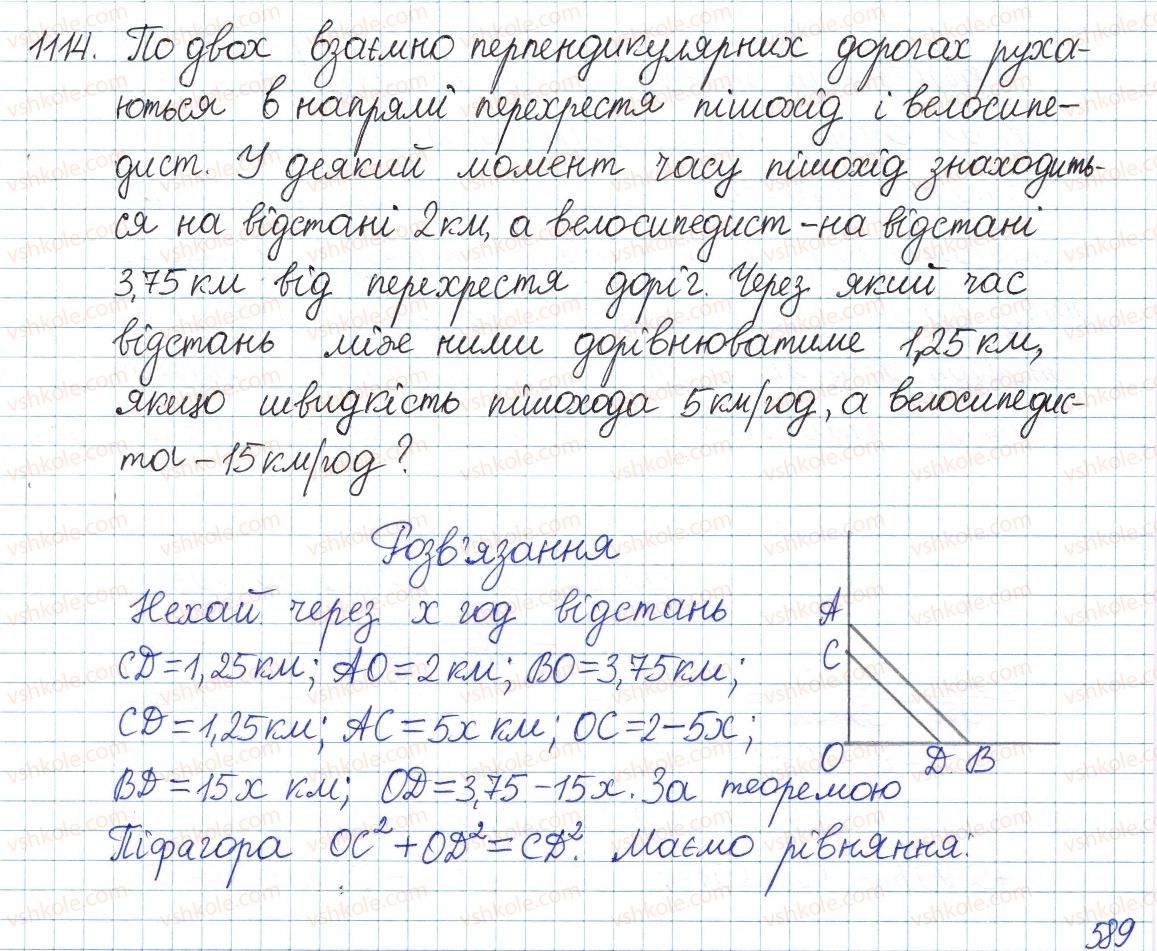 1114. По двох взаємно перпендикулярних дорогах руха-
ються в напрямі перехрестя пішохід і велосипе-
дист. У деякий момент часу пішохід знаходить-
ся на відстані 2 км, а велосипедист – на відстані
3,75 км від перехрестя доріг. Через який час
відстань між ними дорівнюватиме 1,25 км,
якщо швидкість пішохода 5 км/год, а велосипедис-
та – 15 км/год?
Розв'язання
Нехай через x год відстань
CD = 1,25 км; AO = 2 км; BO = 3,75 км;
CD = 1,25 км; AC = 5x км; OC = 2 – 5x;
BD = 15x км; OD = 3,75 – 15x. За теоремою
Піфагора OC² + OD² = CD². Маємо рівняння:
A
C
O D B
589
vshkole.com